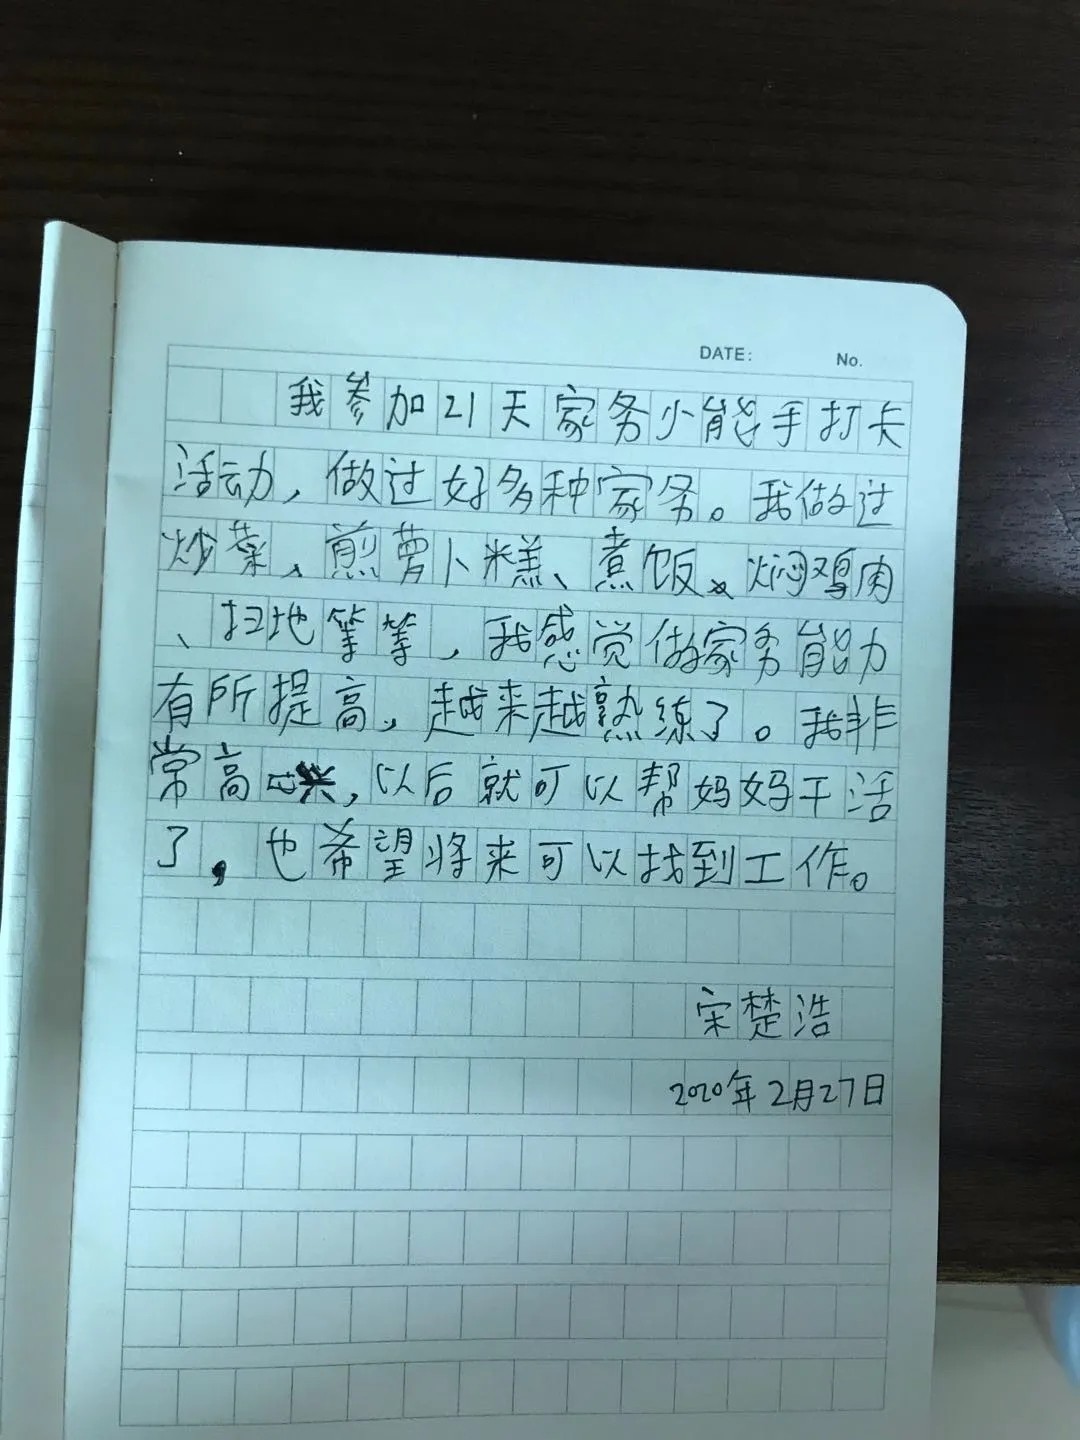 DATE: No.
我参加21天家务小能手打卡
活动，做过好多种家务。我做过
炒菜、煎萝卜糕、煮饭、焖鸡肉
、扫地等等，我感觉做家务能力
有所提高，越来越熟练了。我非
常高兴，以后就可以帮妈妈干活
了，也希望将来可以找到工作。
宋楚浩
2020年2月27日